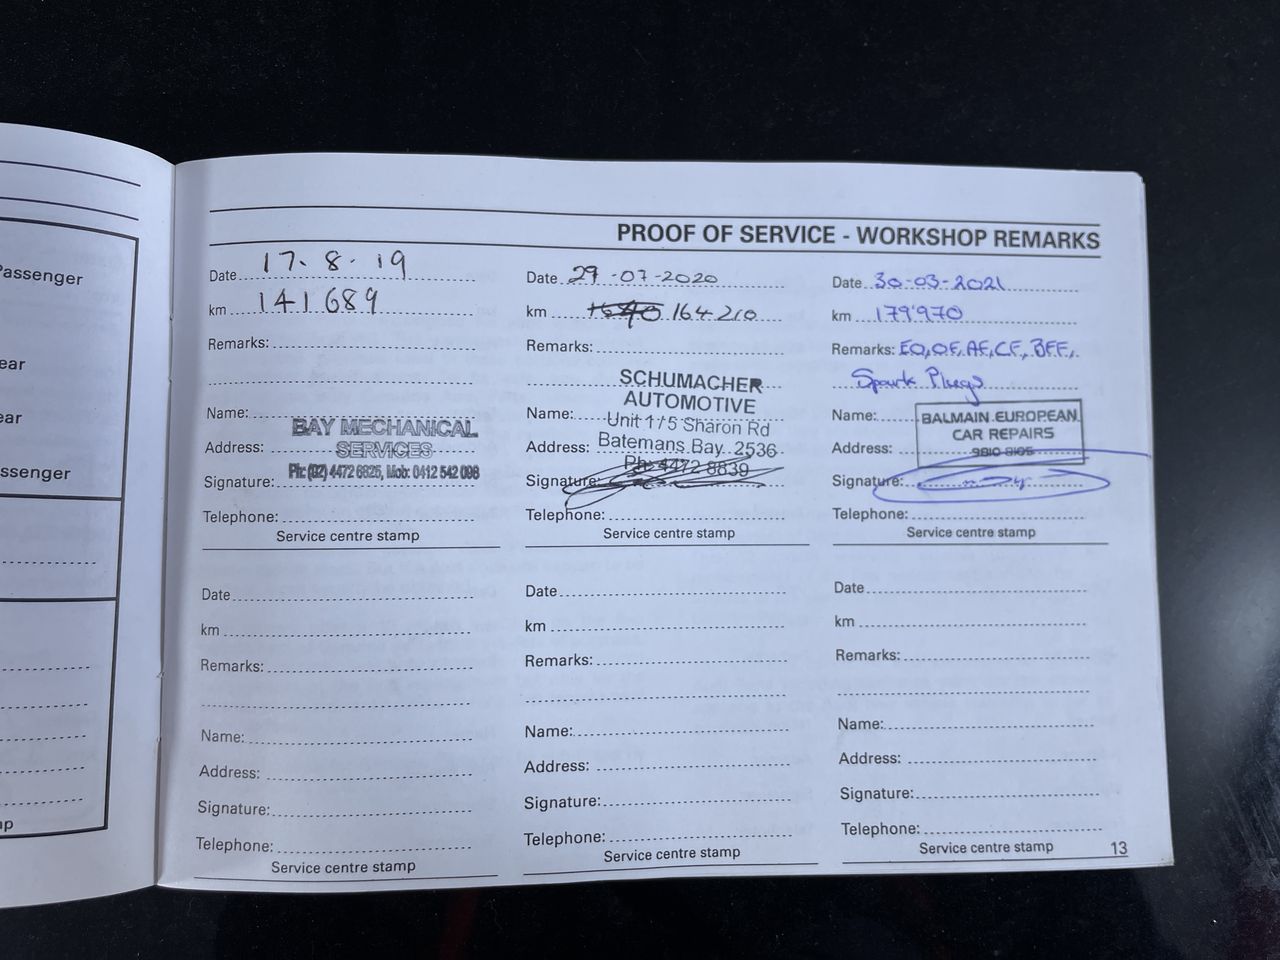 Passenger
ear
ear
ssenger
np
PROOF OF SERVICE - WORKSHOP REMARKS
Date 17.8.19
km 141689
Remarks:
Name:
BAY MECHANICAL
Address:
SERVICES
Signature:
Ph: (02) 4472 6825, Mob: 0412 542 096
Telephone:
Service centre stamp
Date 29-07-2020
km 164210
Remarks:
SCHUMACHER
AUTOMOTIVE
Name:
Unit 1/5 Sharon Rd
Address: Batemans Bay 2536
Ph 4472 8839
Signature:
Telephone:
Service centre stamp
Date 30-03-2021
km 179'970
Remarks: EO, OF, AF, CF, BFF,
Spark Plugs
Name:
BALMAIN EUROPEAN
CAR REPAIRS
Address:
9810 8105
Signature:
Telephone:
Service centre stamp
Date
km
Remarks:
Name:
Address:
Signature:
Telephone:
Service centre stamp
Date
km
Remarks:
Name:
Address:
Signature:
Telephone:
Service centre stamp
Date
km
Remarks:
Name:
Address:
Signature:
Telephone:
Service centre stamp
13